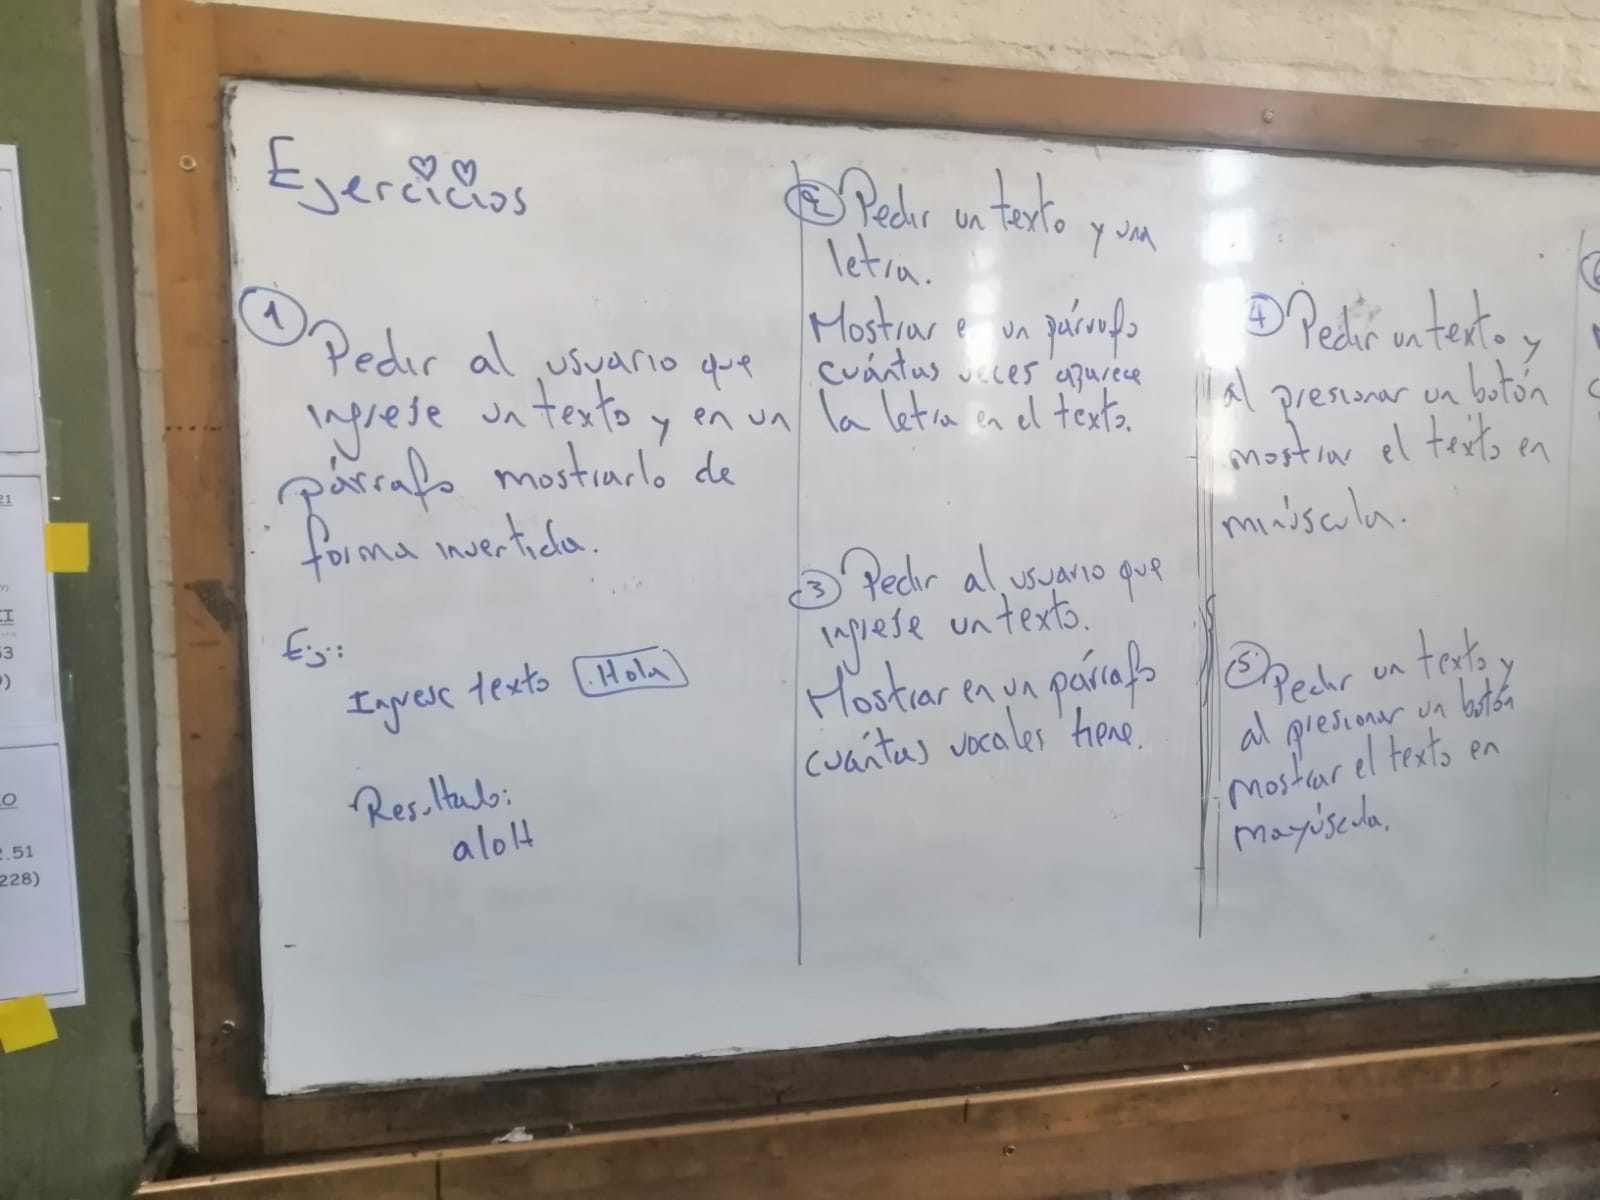 Ejercicios
1 Pedir al usuario que
ingrese un texto y en un
párrafo mostrarlo de
forma invertida.
Ej.:
Ingrese texto Hola
Resultado:
aloH
2 Pedir un texto y una
letra.
Mostrar en un párrafo
cuántas veces aparece
la letra en el texto.
3 Pedir al usuario que
ingrese un texto.
Mostrar en un párrafo
cuántas vocales tiene.
4 Pedir un texto y
al presionar un botón
mostrar el texto en
minúscula.
5 Pedir un texto y
al presionar un botón
mostrar el texto en
mayúscula.
21
53
2.51
228)